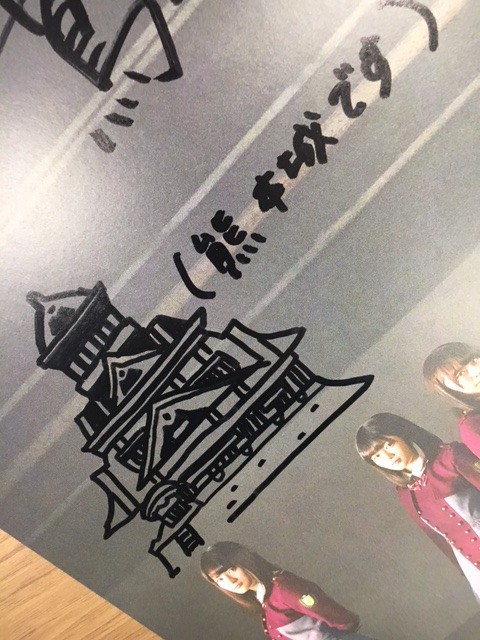 (熊本城です)